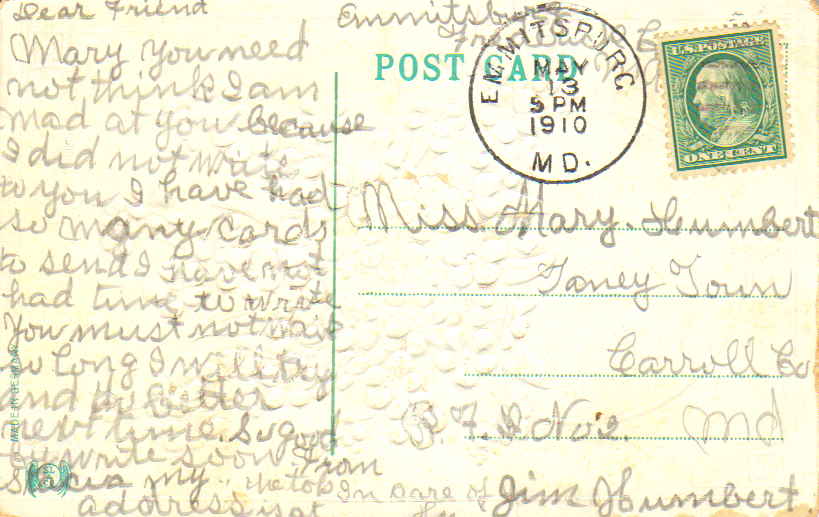 Dear Friend
Mary you need
not think I am
mad at you because
I did not write
to you I have had
so many cards
to send I have not
had time to write
You must not wait
so long I will try
and do better
next time. So good
write soon From
my
address is at
the top
Emmitsburg
POST CARD
EMMITSBURG
MAY
13
5 PM
1910
MD.
U.S. POSTAGE
ONE CENT
Miss Mary Humbert
Taney Town
Carroll Co
R. F. D. No 2. Md
In Care of Jim Humbert
MADE IN GERMANY